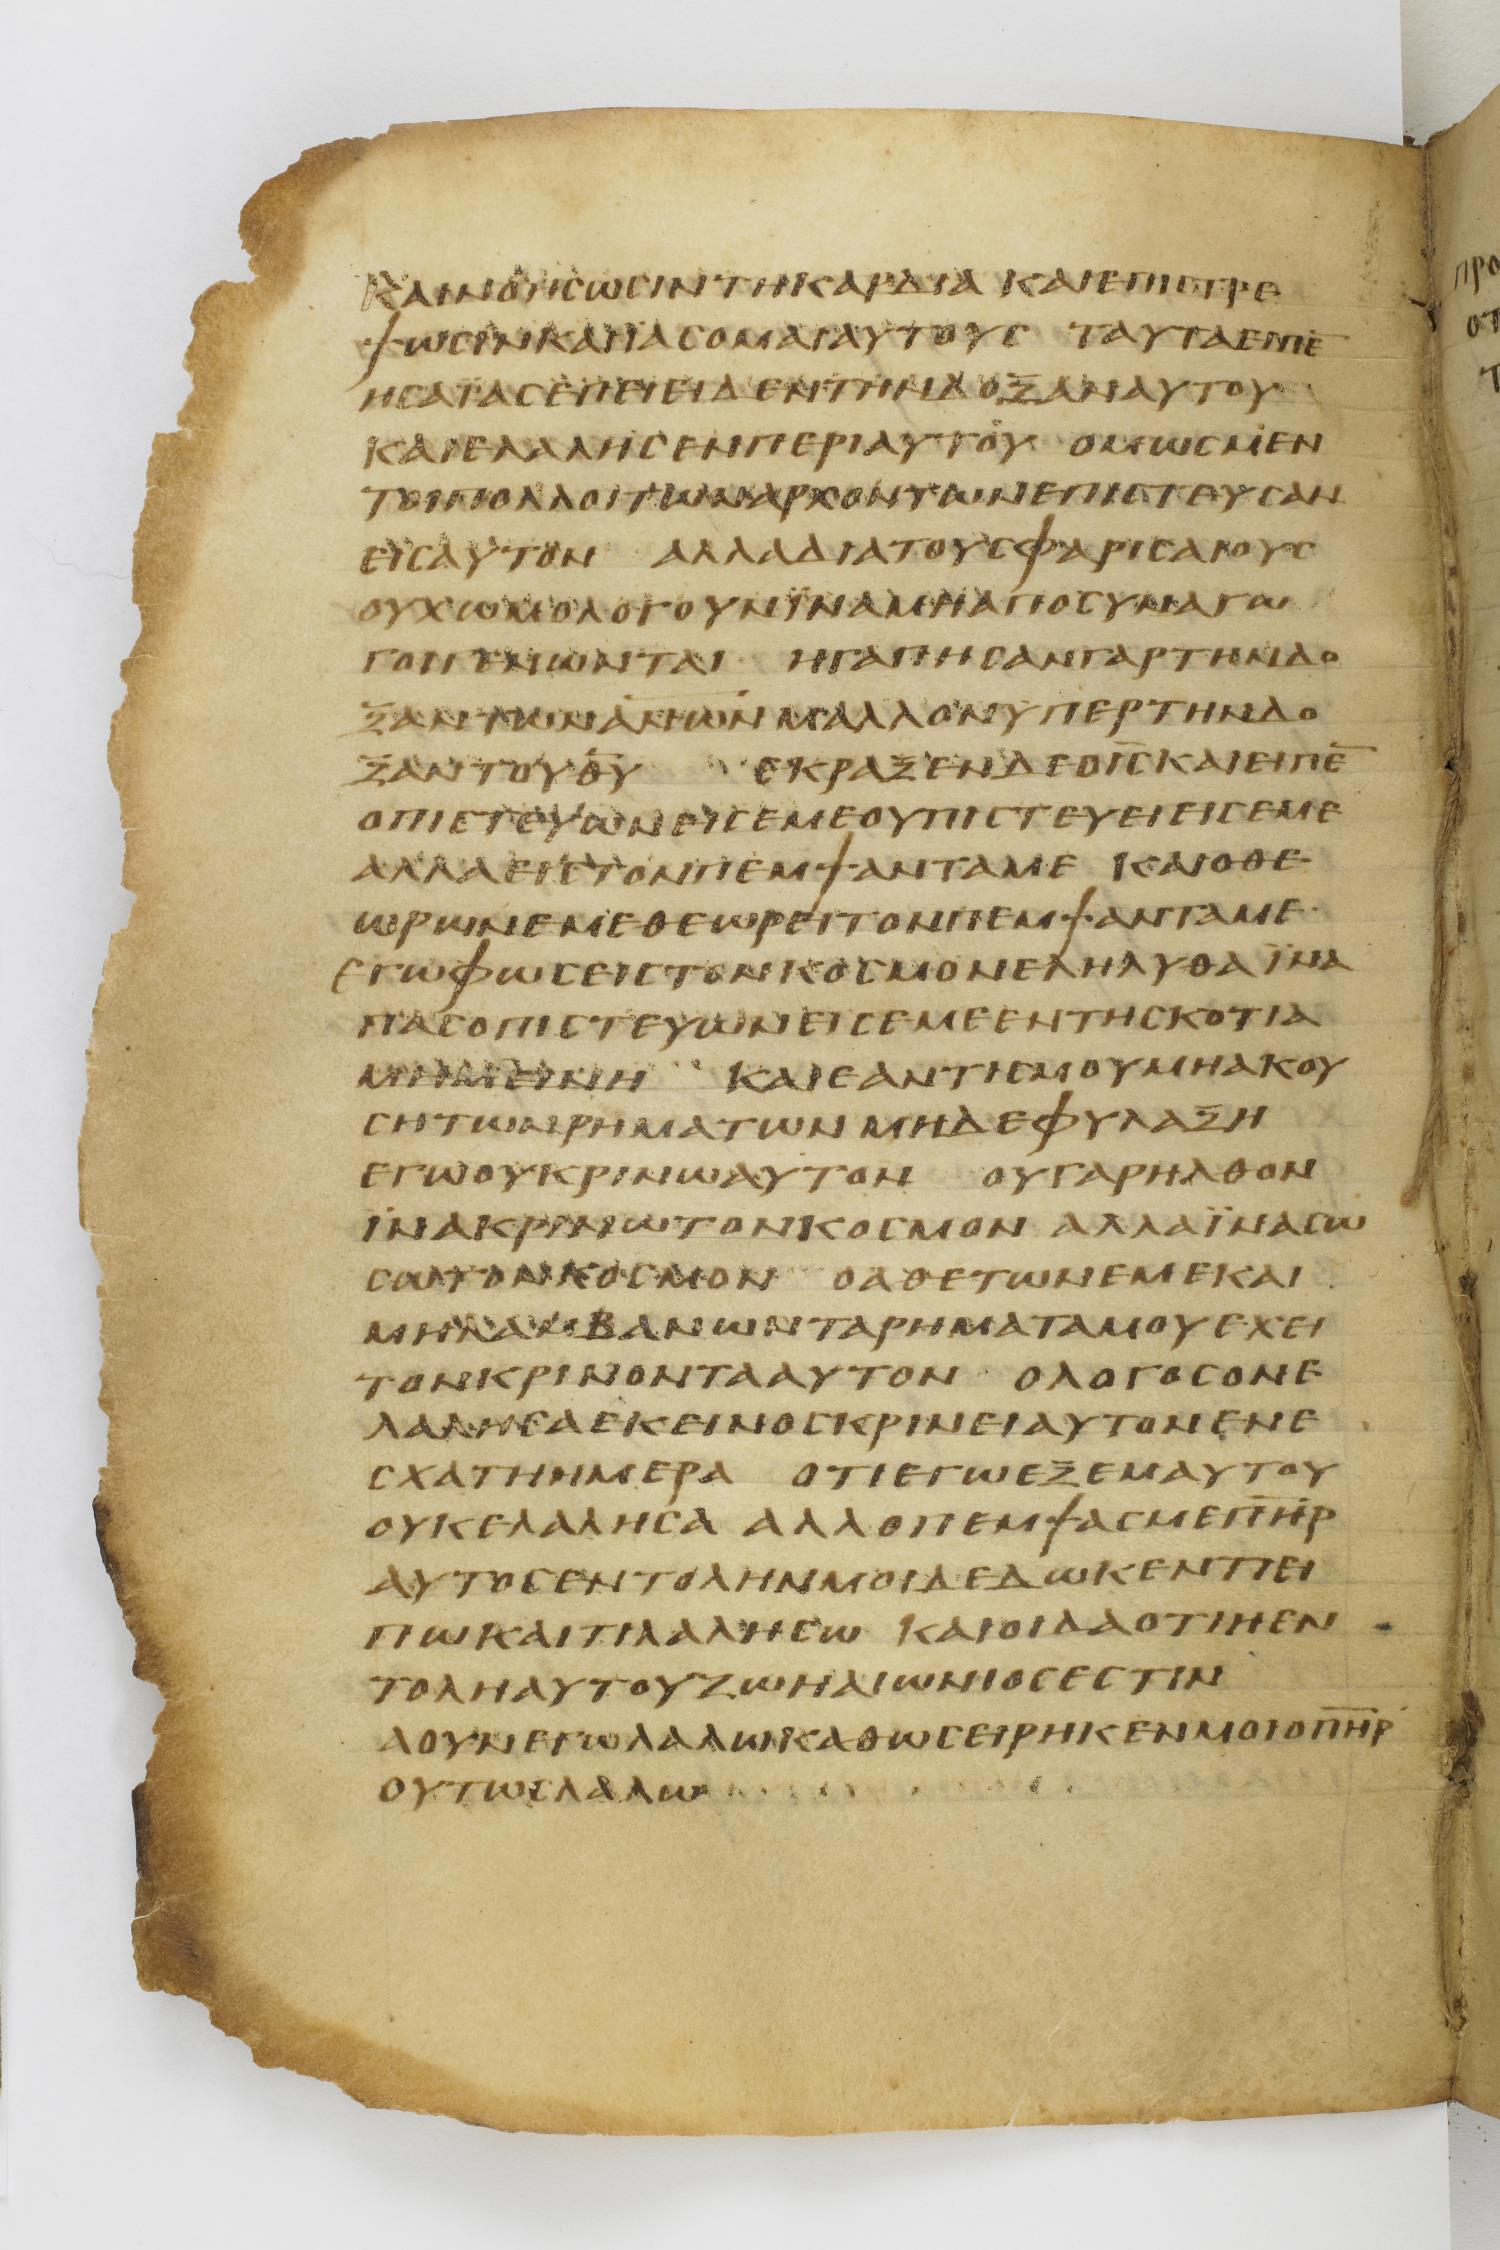 ΚΑΙΝΟΗΣΩΣΙΝΤΗΚΑΡΔΙΑ ΚΑΙΕΠΙΣΤΡΕ
ΨΩΣΙΝΚΑΙΙΑΣΟΜΑΙΑΥΤΟΥΣ ΤΑΥΤΑΕΙΠΕ̅
ΗΣΑΪΑΣΕΠΕΙΕΙΔΕΝΤΗΝΔΟΞΑΝΑΥΤΟΥ
ΚΑΙΕΛΑΛΗΣΕΝΠΕΡΙΑΥΤΟΥ ΟΜΩΣΜΕΝ
ΤΟΙΠΟΛΛΟΙΤΩΝΑΡΧΟΝΤΩΝΕΠΙΣΤΕΥΣΑΝ
ΕΙΣΑΥΤΟΝ ΑΛΛΑΔΙΑΤΟΥΣΦΑΡΙΣΑΙΟΥΣ
ΟΥΧΩΜΟΛΟΓΟΥΝΪΝΑΜΗΑΠΟΣΥΝΑΓΩ
ΓΟΙΓΕΝΩΝΤΑΙ ΗΓΑΠΗΣΑΝΓΑΡΤΗΝΔΟ
ΞΑΝΤΩΝΑ̅Ν̅Ω̅Ν̅ΜΑΛΛΟΝΥΠΕΡΤΗΝΔΟ
ΞΑΝΤΟΥΘ̅Υ̅ ΕΚΡΑΞΕΝΔΕΟΙ̅Σ̅ΚΑΙΕΙΠΕ̅
ΟΠΙΣΤΕΥΩΝΕΙΣΕΜΕΟΥΠΙΣΤΕΥΕΙΕΙΣΕΜΕ
ΑΛΛΑΕΙΣΤΟΝΠΕΜΨΑΝΤΑΜΕ ΚΑΙΟΘΕ
ΩΡΩΝΕΜΕΘΕΩΡΕΙΤΟΝΠΕΜΨΑΝΤΑΜΕ
ΕΓΩΦΩΣΕΙΣΤΟΝΚΟΣΜΟΝΕΛΗΛΥΘΑΪΝΑ
ΠΑΣΟΠΙΣΤΕΥΩΝΕΙΣΕΜΕΕΝΤΗΣΚΟΤΙΑ
ΜΗΜΕΙΝΗ ΚΑΙΕΑΝΤΙΣΜΟΥΜΗΑΚΟΥ
ΣΗΤΩΝΡΗΜΑΤΩΝΜΗΔΕΦΥΛΑΞΗ
ΕΓΩΟΥΚΡΙΝΩΑΥΤΟΝ ΟΥΓΑΡΗΛΘΟΝ
ΪΝΑΚΡΙΝΩΤΟΝΚΟΣΜΟΝ ΑΛΛΑΪΝΑΣΩ
ΣΩΤΟΝΚΟΣΜΟΝ ΟΑΘΕΤΩΝΕΜΕΚΑΙ
ΜΗΛΑΜΒΑΝΩΝΤΑΡΗΜΑΤΑΜΟΥΕΧΕΙ
ΤΟΝΚΡΙΝΟΝΤΑΑΥΤΟΝ ΟΛΟΓΟΣΟΝΕ
ΛΑΛΗΣΑΕΚΕΙΝΟΣΚΡΙΝΕΙΑΥΤΟΝΕΝΕ
ΣΧΑΤΗΗΜΕΡΑ ΟΤΙΕΓΩΕΞΕΜΑΥΤΟΥ
ΟΥΚΕΛΑΛΗΣΑ ΑΛΛΟΠΕΜΨΑΣΜΕΠ̅Η̅Ρ̅
ΑΥΤΟΣΕΝΤΟΛΗΝΜΟΙΔΕΔΩΚΕΝΤΙΕΙ
ΠΩΚΑΙΤΙΛΑΛΗΣΩ ΚΑΙΟΙΔΑΟΤΙΗΕΝ
ΤΟΛΗΑΥΤΟΥΖΩΗΑΙΩΝΙΟΣΕΣΤΙΝ
ΑΟΥΝΕΓΩΛΑΛΩΚΑΘΩΣΕΙΡΗΚΕΝΜΟΙΟΠ̅Η̅Ρ̅
ΟΥΤΩΣΛΑΛΩ
ΠΡΟ
ΟΤ
Τ